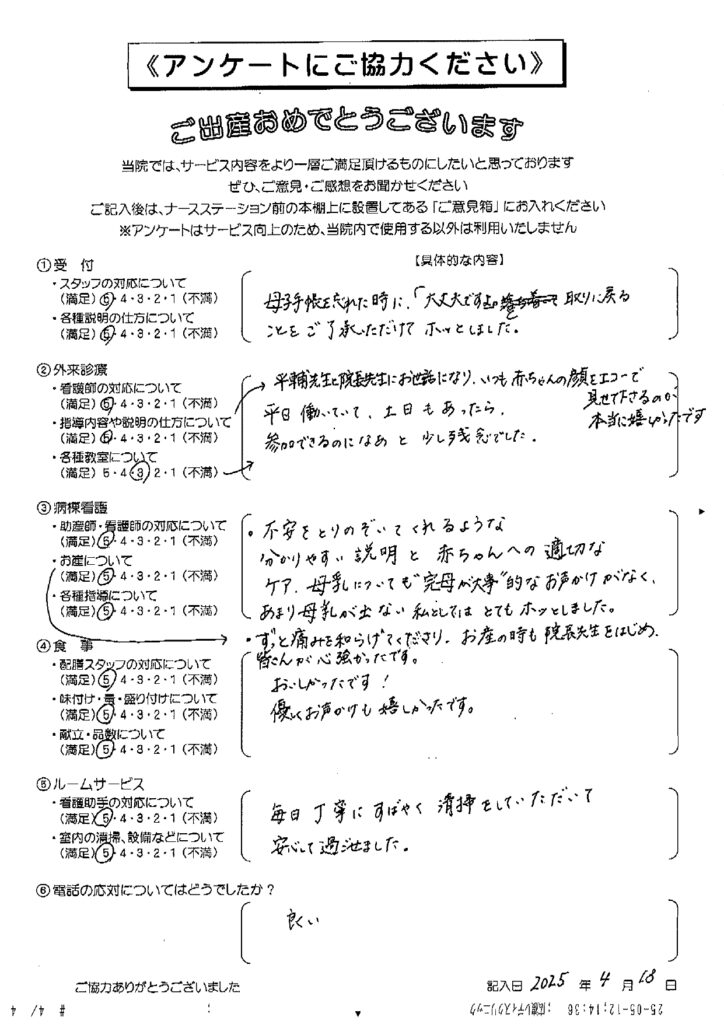 《アンケートにご協力ください》
ご出産おめでとうございます
当院では、サービス内容をより一層ご満足頂けるものにしたいと思っております
ぜひ、ご意見・ご感想をお聞かせください
ご記入後は、ナースステーション前の本棚上に設置してある「ご意見箱」にお入れください
※アンケートはサービス向上のため、当院内で使用する以外は利用いたしません
①受 付
【具体的な内容】
・スタッフの対応について
(満足) 5・4・3・2・1 (不満)
・各種説明の仕方について
(満足) 5・4・3・2・1 (不満)
母子手帳を忘れた時に、「大丈夫ですよ 取りに戻る
ことをご了承いただけて ホッとしました。
②外来診療
・看護師の対応について
(満足) 5・4・3・2・1 (不満)
・指導内容や説明の仕方について
(満足) 5・4・3・2・1 (不満)
・各種教室について
(満足) 5・4・3・2・1 (不満)
平輔先生と院長先生にお世話になり、いつも赤ちゃんの顔をエコーで
見せて下さるのが
本当に嬉しかったです
平日 働いていて、土日もあったら、
参加できるのになあ と 少し残念でした。
③病棟看護
・助産師・看護師の対応について
(満足) 5・4・3・2・1 (不満)
・お産について
(満足) 5・4・3・2・1 (不満)
・各種指導について
(満足) 5・4・3・2・1 (不満)
・不安をとりのぞいてくれるような
分かりやすい 説明と 赤ちゃんへの 適切な
ケア、母乳についても"完母が大事"的なお声かけがなく、
あまり母乳が出ない私としては とてもホッとしました。
・ずっと痛みを和らげてくださり、お産の時も 院長先生をはじめ、
皆さんが心強かったです。
④食 事
・配膳スタッフの対応について
(満足) 5・4・3・2・1 (不満)
・味付け・量・盛り付けについて
(満足) 5・4・3・2・1 (不満)
・献立・品数について
(満足) 5・4・3・2・1 (不満)
おいしかったです！
優しいお声かけも 嬉しかったです。
⑤ルームサービス
・看護助手の対応について
(満足) 5・4・3・2・1 (不満)
・室内の清掃、設備などについて
(満足) 5・4・3・2・1 (不満)
毎日 丁寧に すばやく 清掃をしていただいて
安心して過ごせました。
⑥電話の応対についてはどうでしたか？
良い
ご協力ありがとうございました
記入日 2025 年 4 月 18 日
25-05-12;14:36 ;広瀬レディスクリニック
# 4/ 4